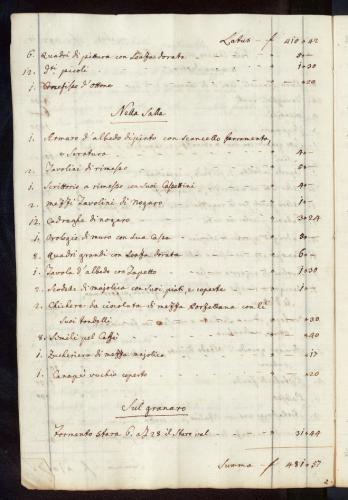 Latus - f 410 » 42
6. Quadri di pittura con Soaza dorata - - - 8 » -
12. Dti piccoli - - - 1 » 30
1. Crocefisso d'Ottone - - - » 20
Nella Salla
1. Armaro d'albedo dipinto con scancello ferramenta,
e Seratura - - - 4 » -
2. Tavolini di rimesso - - - 8 » -
1. Scrittorio a rimesso con suoi Cassettini - - - 4 » -
2. mezzi Tavolini di nogaro - - - 1 » -
12. Cadreghe di nogaro - - - 3 » 24
1. Orologio di muro con sua Cassa - - - 8 » -
8. Quadri grandi con Soaza dorata - - - 6 » -
1. Tavola d'albedo con Tapetto - - - 1 » 30
2. Scodelle di majolica con suoi piati, e coperte - - - 1 » -
2. Chichere da ciocolata di mezza Porcellana con li
suoi tondelli - - - » 30
8. Simili pel Caffè - - - » 40
1. Zucheriera di mezza majolica - - - » 17
1. Canapè vechio coperto - - - » 20
Sul granaro
Formento stara 6. a f 28 il Staro val - - - 31 » 44
Summa - f 481 » 57
2